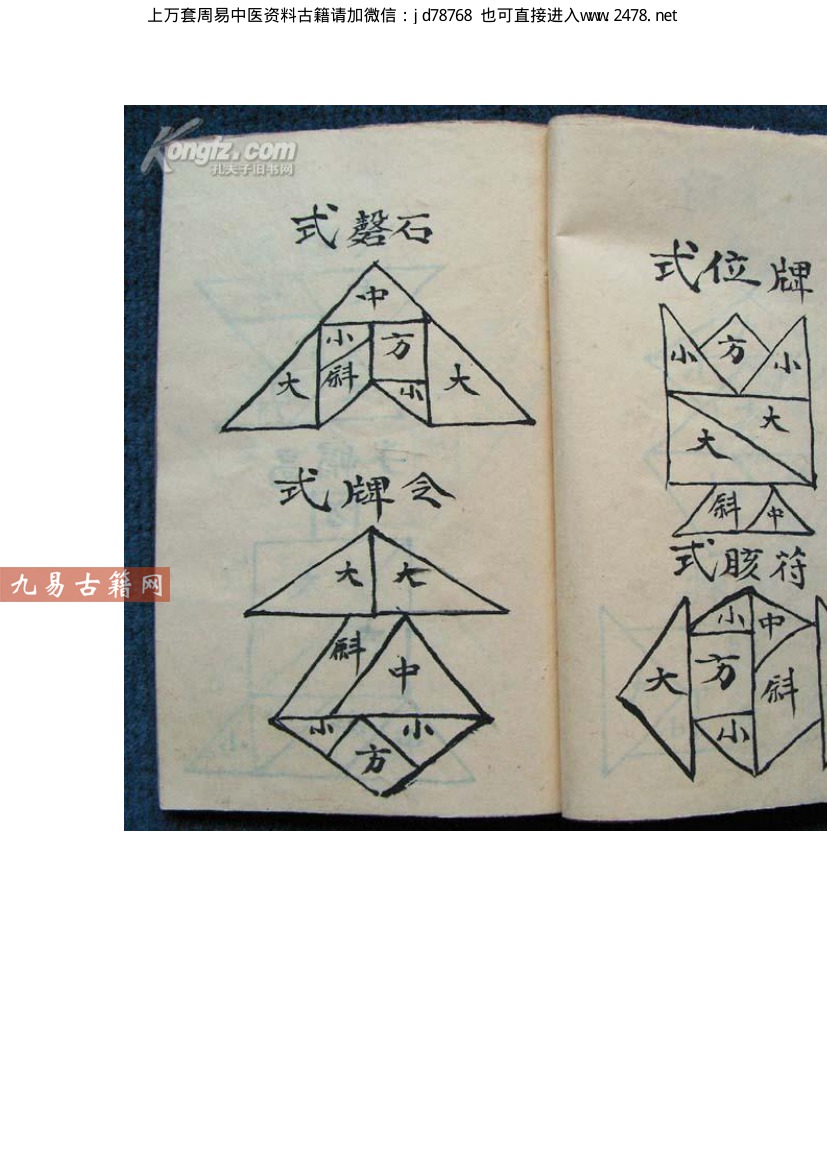 上万套周易中医资料古籍请加微信：jd78768 也可直接进入www.2478.net
Kongfz.com
孔夫子旧书网
式磬石
中
小 方
大 斜 小 大
式牌令
大 大
斜 中
小 小
方
九易古籍网
式位牌
小 方 小
大 大
斜 中
式胲符
小 中
大 方 斜
小